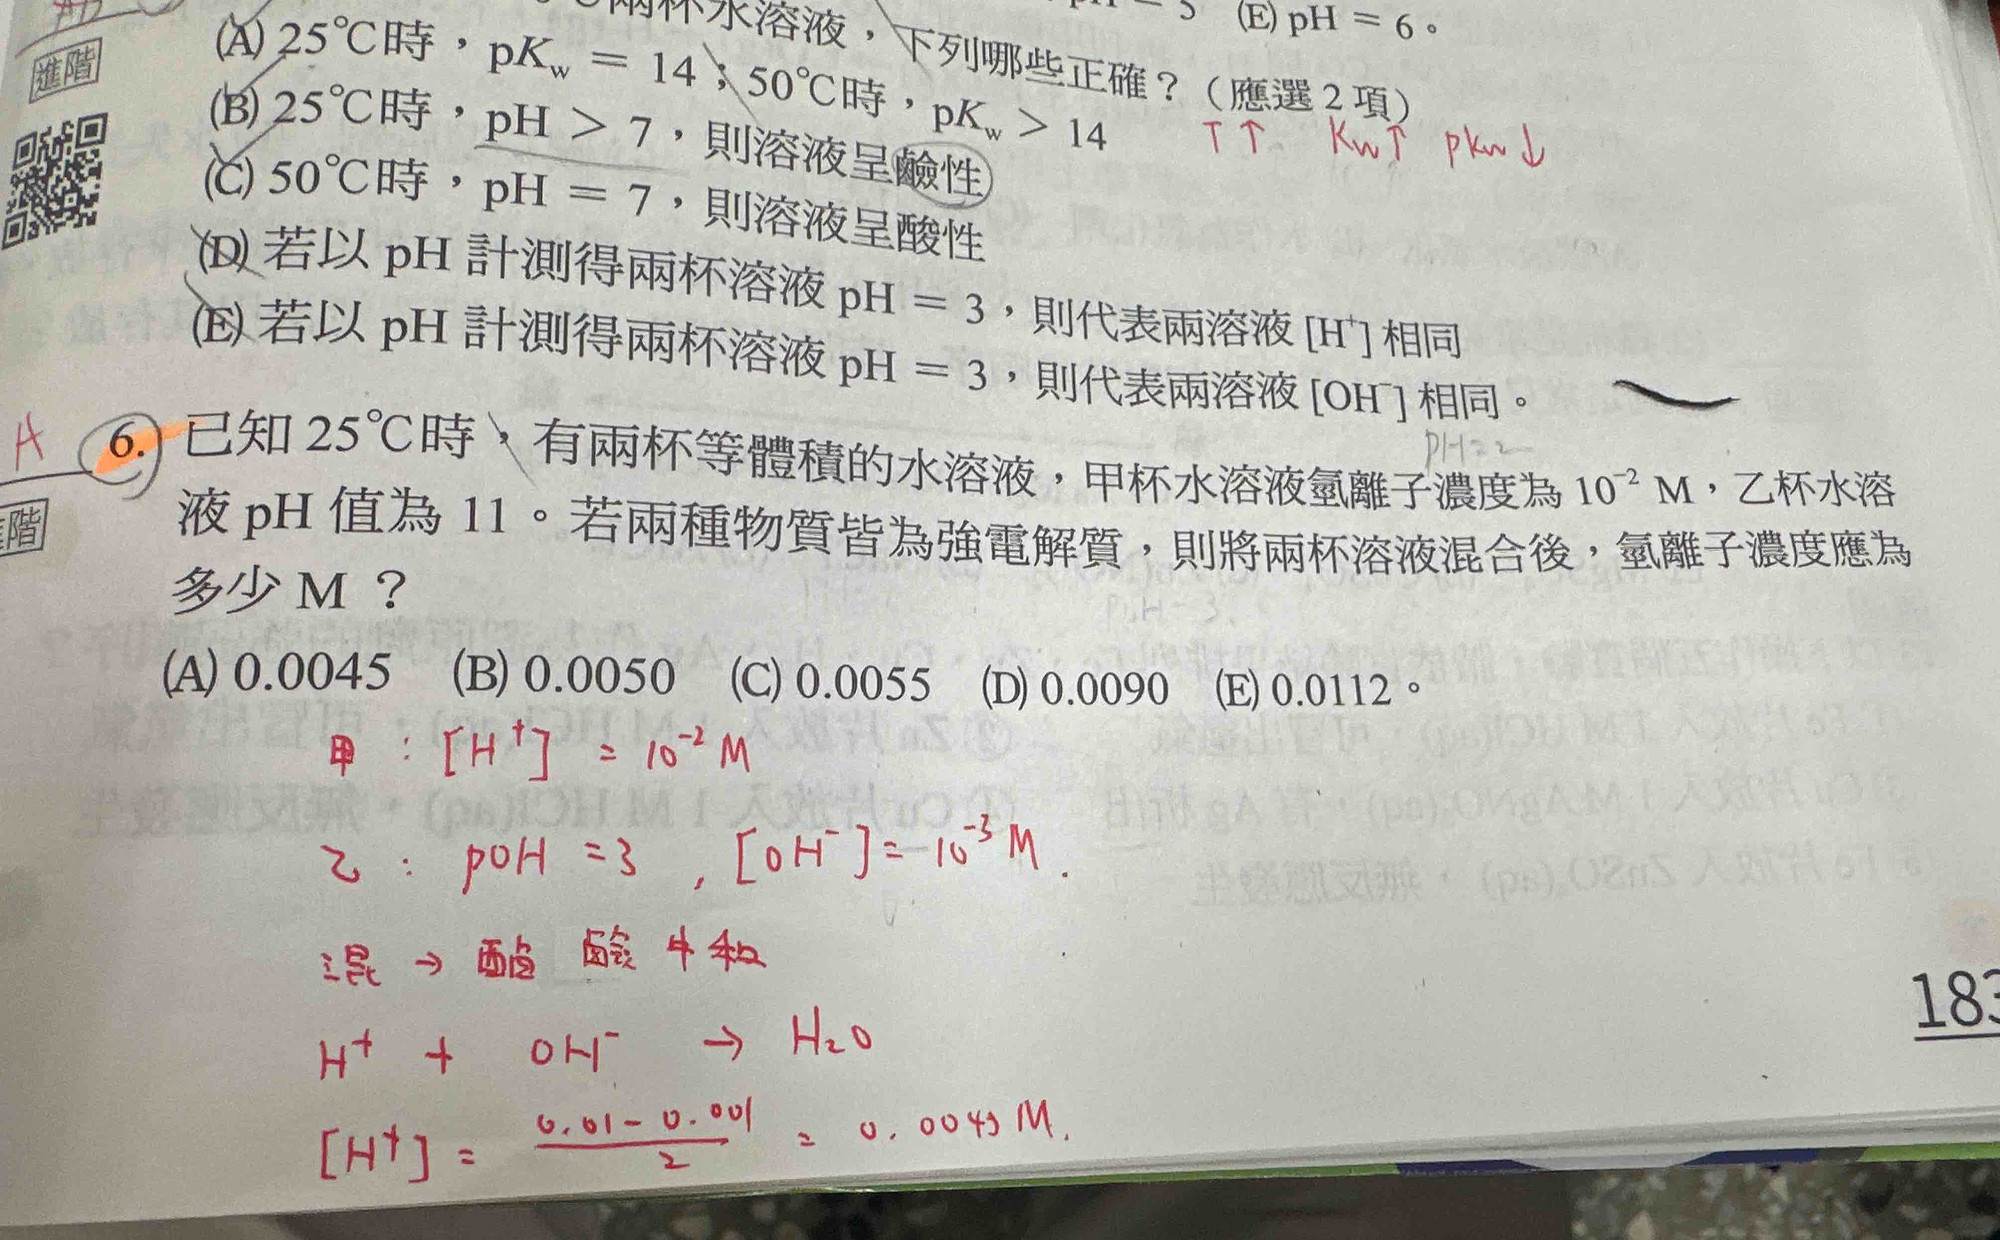 (E) pH = 6。
兩杯水溶液，下列哪些正確？（應選 2 項）
進階
(A) 25℃時，pKw = 14；50℃時，pKw > 14
T↑ Kw↑ pKw↓
(B) 25℃時，pH > 7，則溶液呈鹼性
(C) 50℃時，pH = 7，則溶液呈酸性
(D) 若以 pH 計測得兩杯溶液 pH = 3，則代表兩溶液 [H⁺] 相同
(E) 若以 pH 計測得兩杯溶液 pH = 3，則代表兩溶液 [OH⁻] 相同。
pH=2
A 6. 已知 25℃時，有兩杯等體積的水溶液，甲杯水溶液氫離子濃度為 10⁻² M，乙杯水溶
液 pH 值為 11。若兩種物質皆為強電解質，則將兩杯溶液混合後，氫離子濃度應為
多少 M？
(A) 0.0045 (B) 0.0050 (C) 0.0055 (D) 0.0090 (E) 0.0112。
甲：[H⁺] = 10⁻² M
乙：pOH = 3，[OH⁻] = 10⁻³ M.
混 → 酸 鹼 中 和
H⁺ + OH⁻ → H₂O
[H⁺] = (0.01 - 0.001)/2 = 0.0045 M.